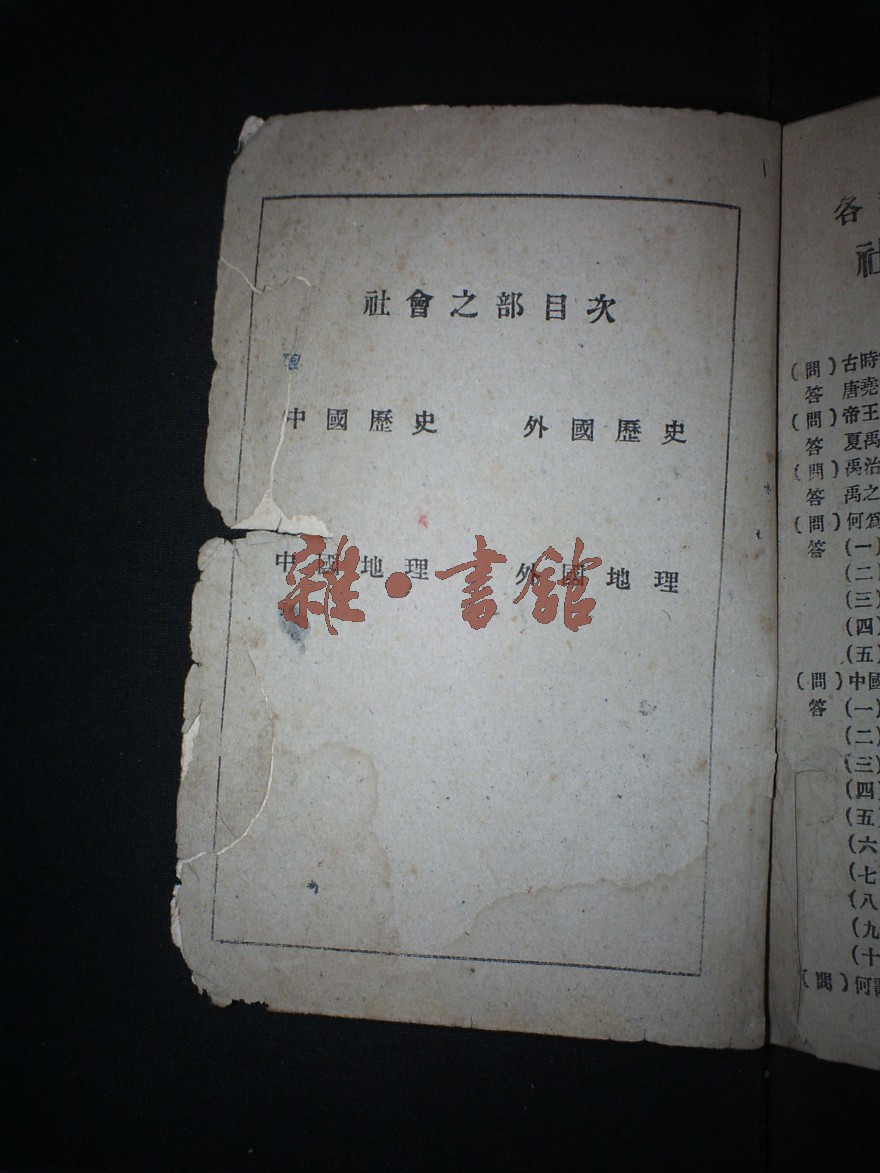 社會之部目次
中國歷史 外國歷史
中國地理 外國地理
雜·書館
各
社
(問)古時
答 唐堯
(問)帝王
答 夏禹
(問)禹治
答 禹之
(問)何爲
答 (一)
(二)
(三)
(四)
(五)
(問)中國
答 (一)
(二)
(三)
(四)
(五)
(六
(七
(八
(九
(十
(問)何